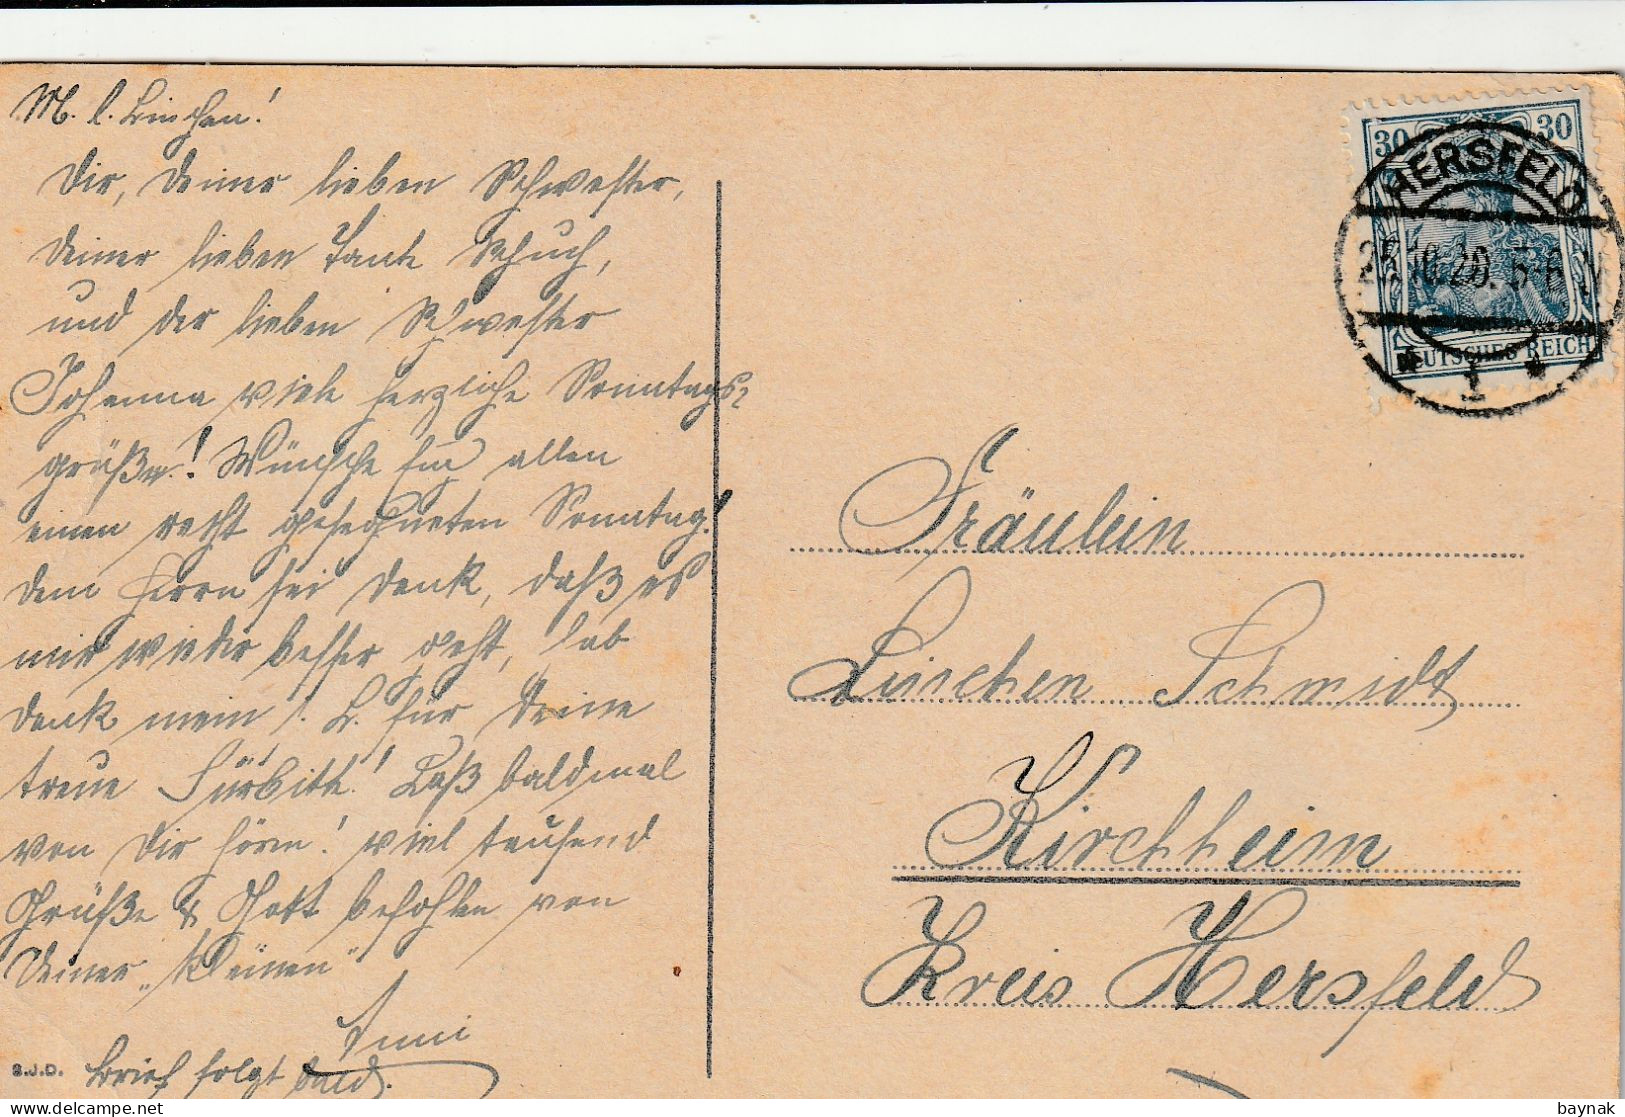 M. l. Linchen!
Dir, Deiner lieben Schwester,
Deiner lieben Tante Schuch,
und der lieben Schwester
Johanna viele herzliche Sonntags-
grüße! Wünsche Euch allen
einen recht gesegneten Sonntag!
Dem Herrn sei Dank, daß es
mir wieder besser geht, hab
Dank mein l. L. für Deine
treue Fürbitte! Laß bald mal
von Dir hören! Viel tausend
Grüße & Gott befohlen von
Deiner „Kleinen"
Anni
Brief folgt bald.
S.J.D.
30 30
HERSFELD
25.10.20. 5-6 N
DEUTSCHES REICH
1
Fräulein
Linchen Schmidt
Kirchheim
Kreis Hersfeld
baynak